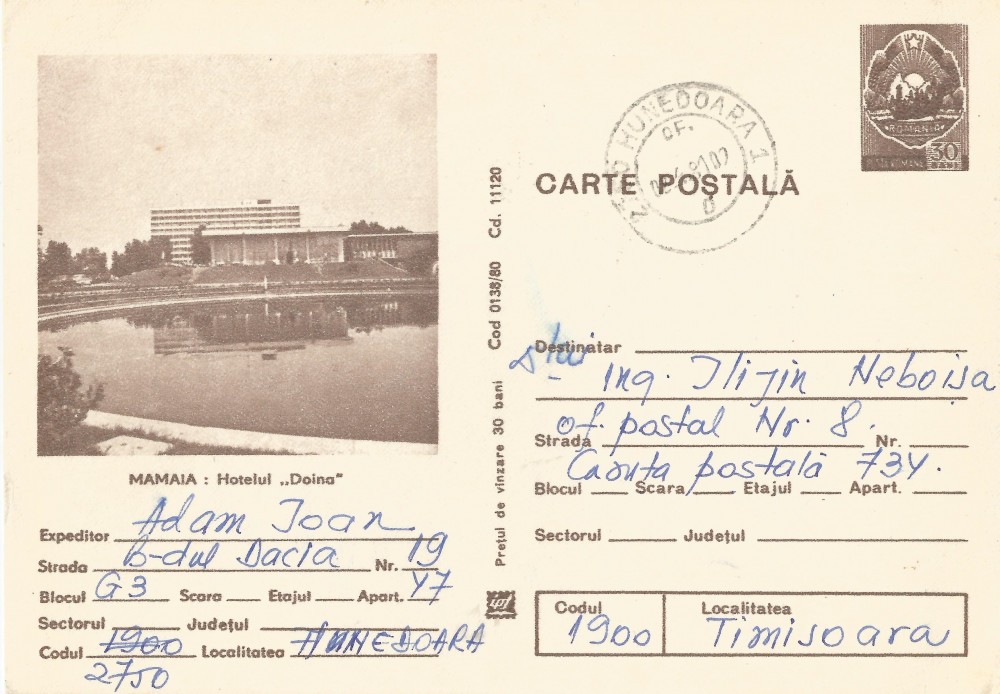 MAMAIA : Hotelul „Doina"
Expeditor Adam Ioan
Strada B-dul Dacia Nr. 19
Blocul G3 Scara Etajul Apart. 47
Sectorul Județul
Codul 1900 Localitatea HUNEDOARA
2750
Prețul de vînzare 30 bani Cod 0138/80 Cd. 11120
HUNEDOARA 1
OF.
CARTE POȘTALĂ
ROMANIA
POSTA ROMANA 30
BANI
Destinatar
Ing. Ilijin Neboisa
of. postal Nr. 8.
Strada Nr.
Casuta postală 734.
Blocul Scara Etajul Apart.
Sectorul Județul
Codul Localitatea
1900 Timisoara